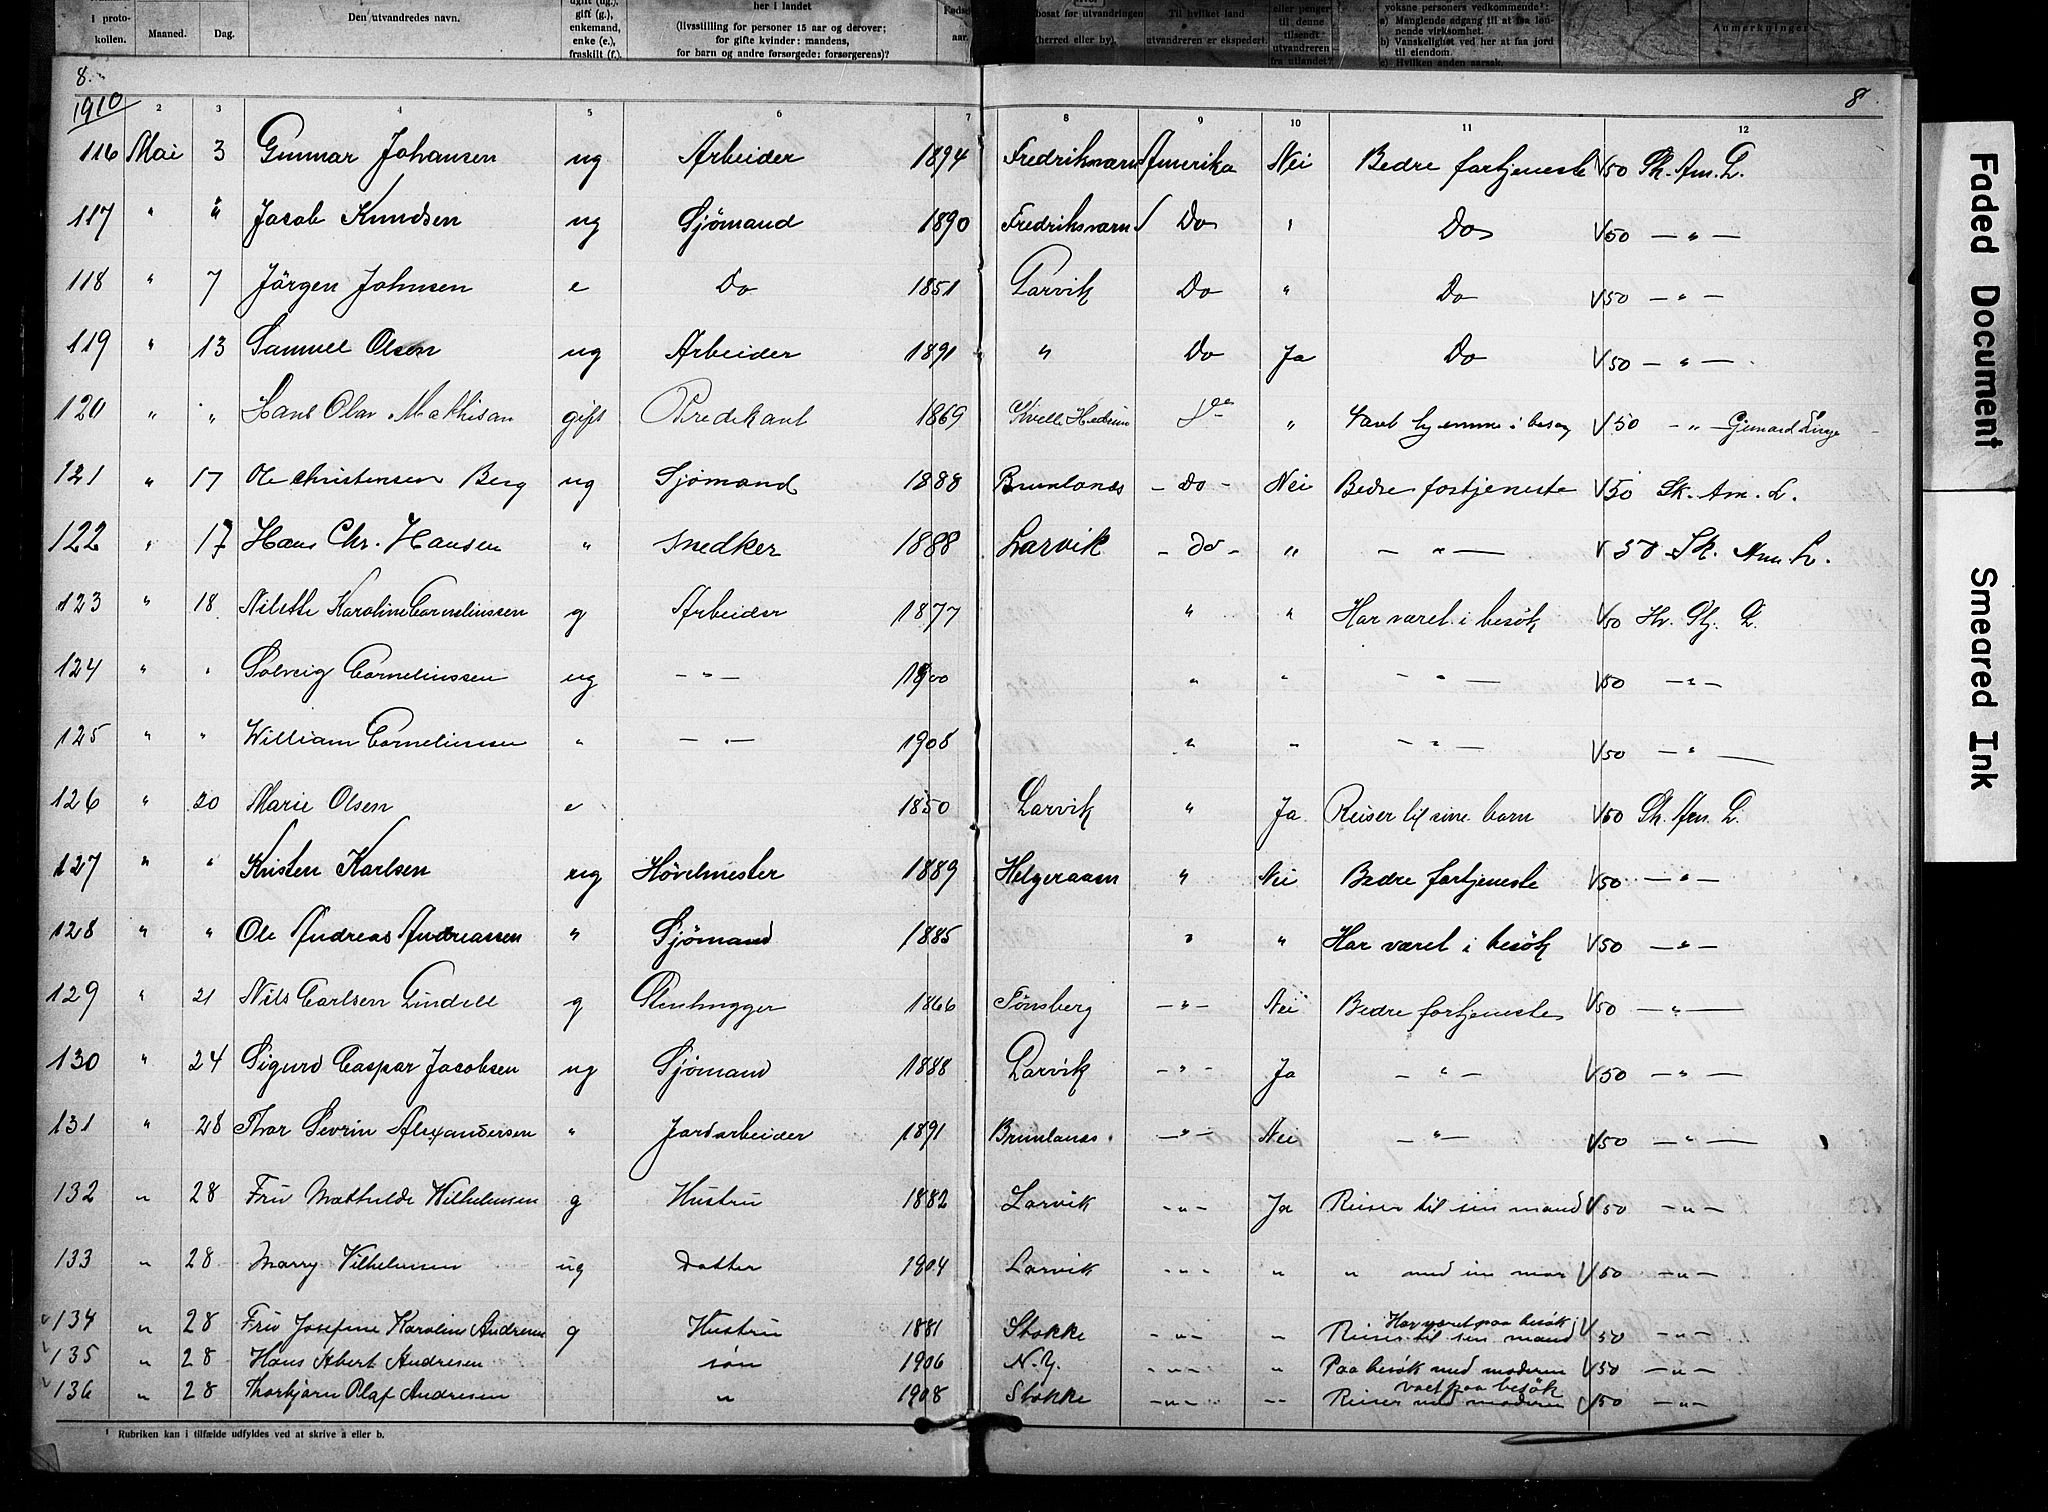 i proto-
kollen.
Maaned.
Dag.
Den utvandredes navn.
gift (g.),
enkemand,
enke (e.),
fraskilt (f.).
her i landet
(livsstilling for personer 15 aar og derover;
for gifte kvinder: mandens,
for barn og andre forsørgede: forsørgerens)?
aar.
bosat før utvandringen
(herred eller by).
Til hvilket land
utvandreren er ekspedert.
eller penger
til denne
tilsendt
utvandreren
fra utlandet?
voksne personers vedkommende¹:
a) Manglende adgang til at faa løn-
nende virksomhet.
b) Vanskelighet ved her at faa jord
til eiendom.
c) Hvilken anden aarsak.
Anmerkninger
8. 8.
1910 2 3 4 5 6 7 8 9 10 11 12
116 Mai 3 Gunnar Johansen ug Arbeider 1894 Fredriksvarn Amerika Nei Bedre fortjeneste V50 Sk. Am. L.
117 " " Jacob Knudsen ug Sjömand 1890 Fredriksvarn Do " Do V50 — " —
118 " 7 Jörgen Johnsen e Do 1851 Larvik Do " Do V50 — " —
119 " 13 Samuel Olsen ug Arbeider 1891 " Do Ja Do V50 — " —
120 " " Hans Olav Mathisen gift Predikant 1869 Kvelle Hedrum Do " Vært hjemme i besøg V50 — " —
121 " 17 Ole Christensen Berg ug Sjömand 1888 Brunlanes - Do - Nei Bedre fortjeneste V50 Sk. Am. L.
122 " 17 Hans Chr. Hansen " Snedker 1888 Larvik - Do - " — " — V 50 Sk. Am. L.
123 " 18 Nilette Karoline Corneliussen g Arbeider 1877 " " Har været i besök V50
124 " " Solveig Corneliussen ug — " — 1900 " " — " — V50 — " —
125 " " William Corneliussen " — " — 1908 " " — " — V50 — " —
126 " 20 Marie Olsen e 1850 Larvik " Ja Reiser til sine barn V50 Sk. Am. L.
127 " " Kristen Karlsen ug Hövelmester 1889 Helgeraaen " Nei Bedre fortjeneste V50 — " —
128 " " Ole Andreas Andreassen " Sjömand 1885 " " Har været i besök V50 — " —
129 " 21 Nils Carlsen Lindell g Stenhugger 1866 Tönsberg — " — Nei Bedre fortjeneste V50 — " —
130 " 24 Sigurd Caspar Jacobsen ug Sjömand 1888 Larvik — " — Ja — " — V50 — " —
131 " 28 Thor Sevrin Alexandersen " Jordarbeider 1891 Brunlanes — " — Nei — " — V50 — " —
132 " 28 Fru Mathilde Wilhelmsen g Hustru 1882 Larvik — " — Ja Reiser til sin mand V50 — " —
133 " 28 Marry Vilhelmsen ug Datter 1904 Larvik — " — " " med sin mor V50 — " —
134 " 28 Fru Josefine Karolin Andresen g Hustru 1881 Stokke — " — " Har været paa besök Reiser til sin mand V50 — " —
135 " 28 Hans Abert Andresen sön 1906 N.Y. — " — " Paa besök med moderen V50 — " —
136 " 28 Thorbjørn Olaf Andresen " 1908 Stokke — " — " vært paa besök Reiser med moderen V50 — " —
¹ Rubriken kan i tilfælde udfyldes ved at skrive a eller b.
Faded Document
Smeared Ink